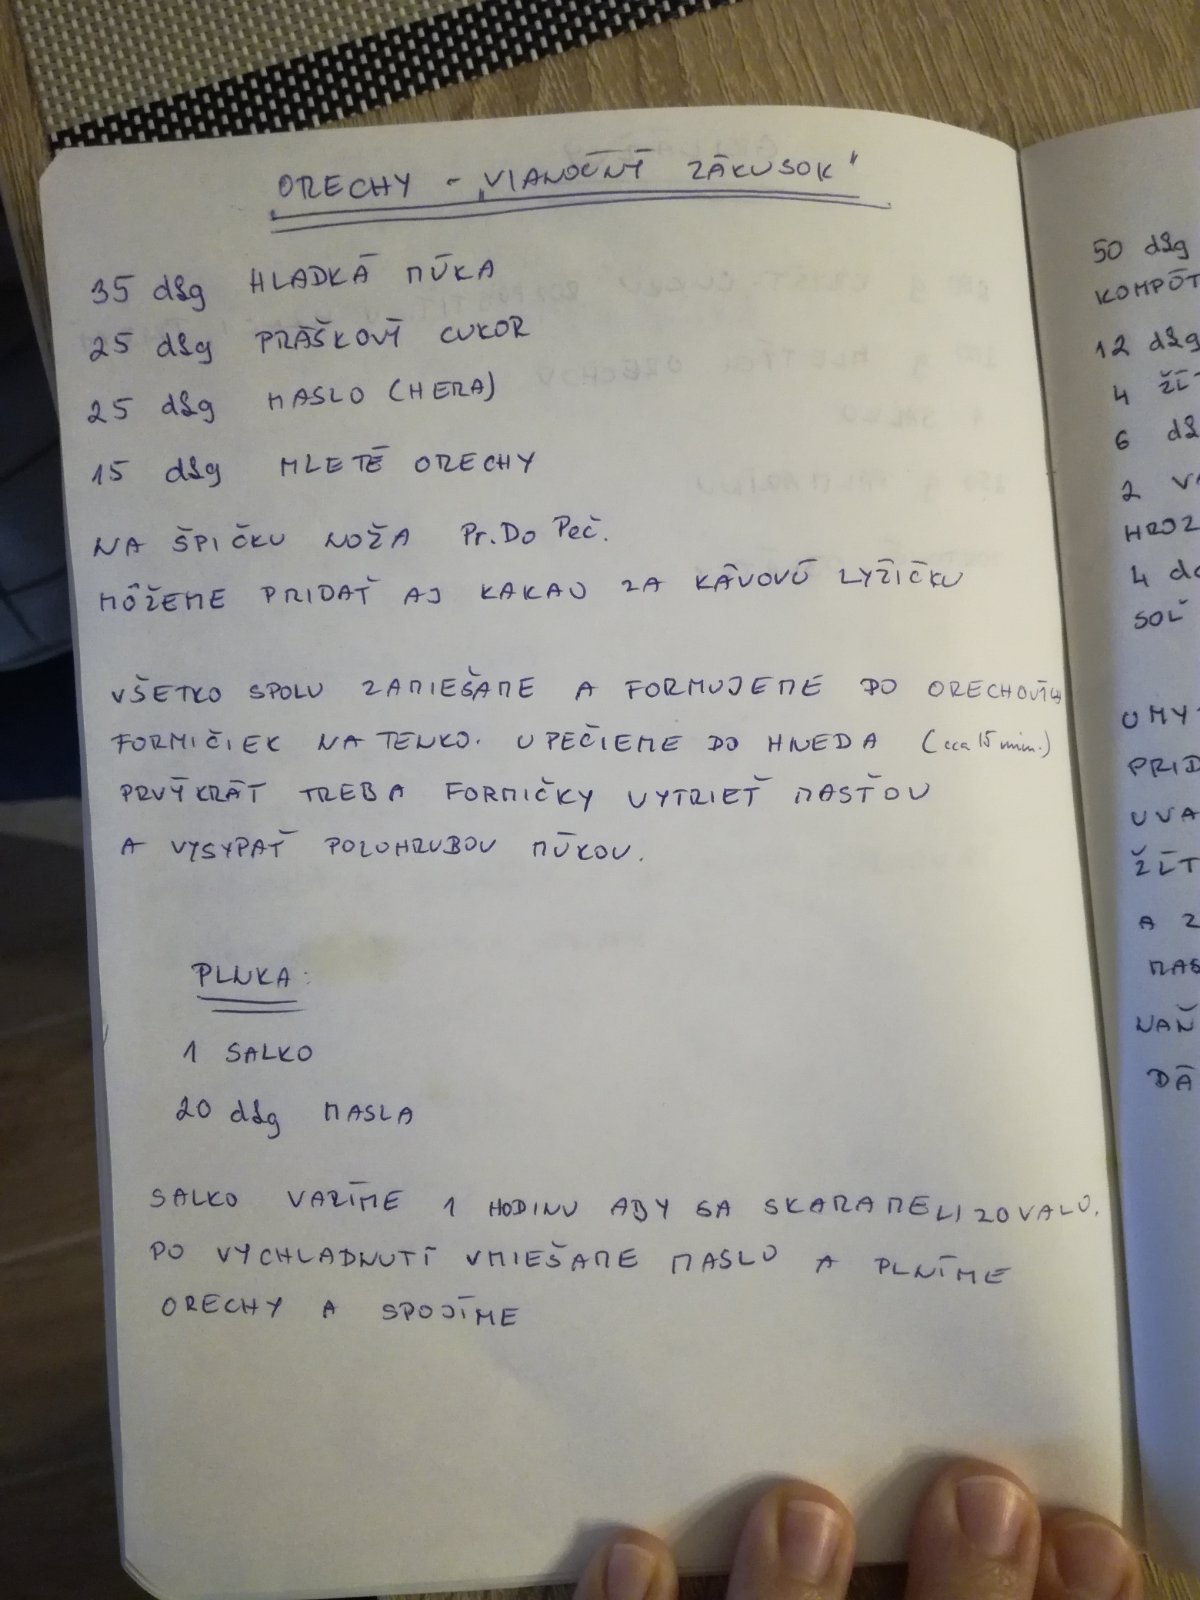 ORECHY - „VIANOČNÝ ZÁKUSOK"
35 dkg HLADKÁ MÚKA
25 dkg PRÁŠKOVÝ CUKOR
25 dkg MASLO (HERA)
15 dkg MLETÉ ORECHY
NA ŠPIČKU NOŽA Pr. Do Peč.
MÔŽEME PRIDAŤ AJ KAKAO ZA KÁVOVÚ LYŽIČKU
VŠETKO SPOLU ZAMIEŠAME A FORMUJEME DO ORECHOVÝCH
FORMIČIEK NA TENKO. UPEČIEME DO HNEDA (cca 15 min.)
PRVÝKRÁT TREBA FORMIČKY VYTRIEŤ MASŤOU
A VYSYPAŤ POLOHRUBOU MÚKOU.
PLNKA:
1 SALKO
20 dkg MASLA
SALKO VARÍME 1 HODINU ABY SA SKARAMELIZOVALO.
PO VYCHLADNUTÍ VMIEŠAME MASLO A PLNÍME
ORECHY A SPOJÍME
50 dkg
KOMPÓT
12 dkg
4
6
2
4
SOĽ
A